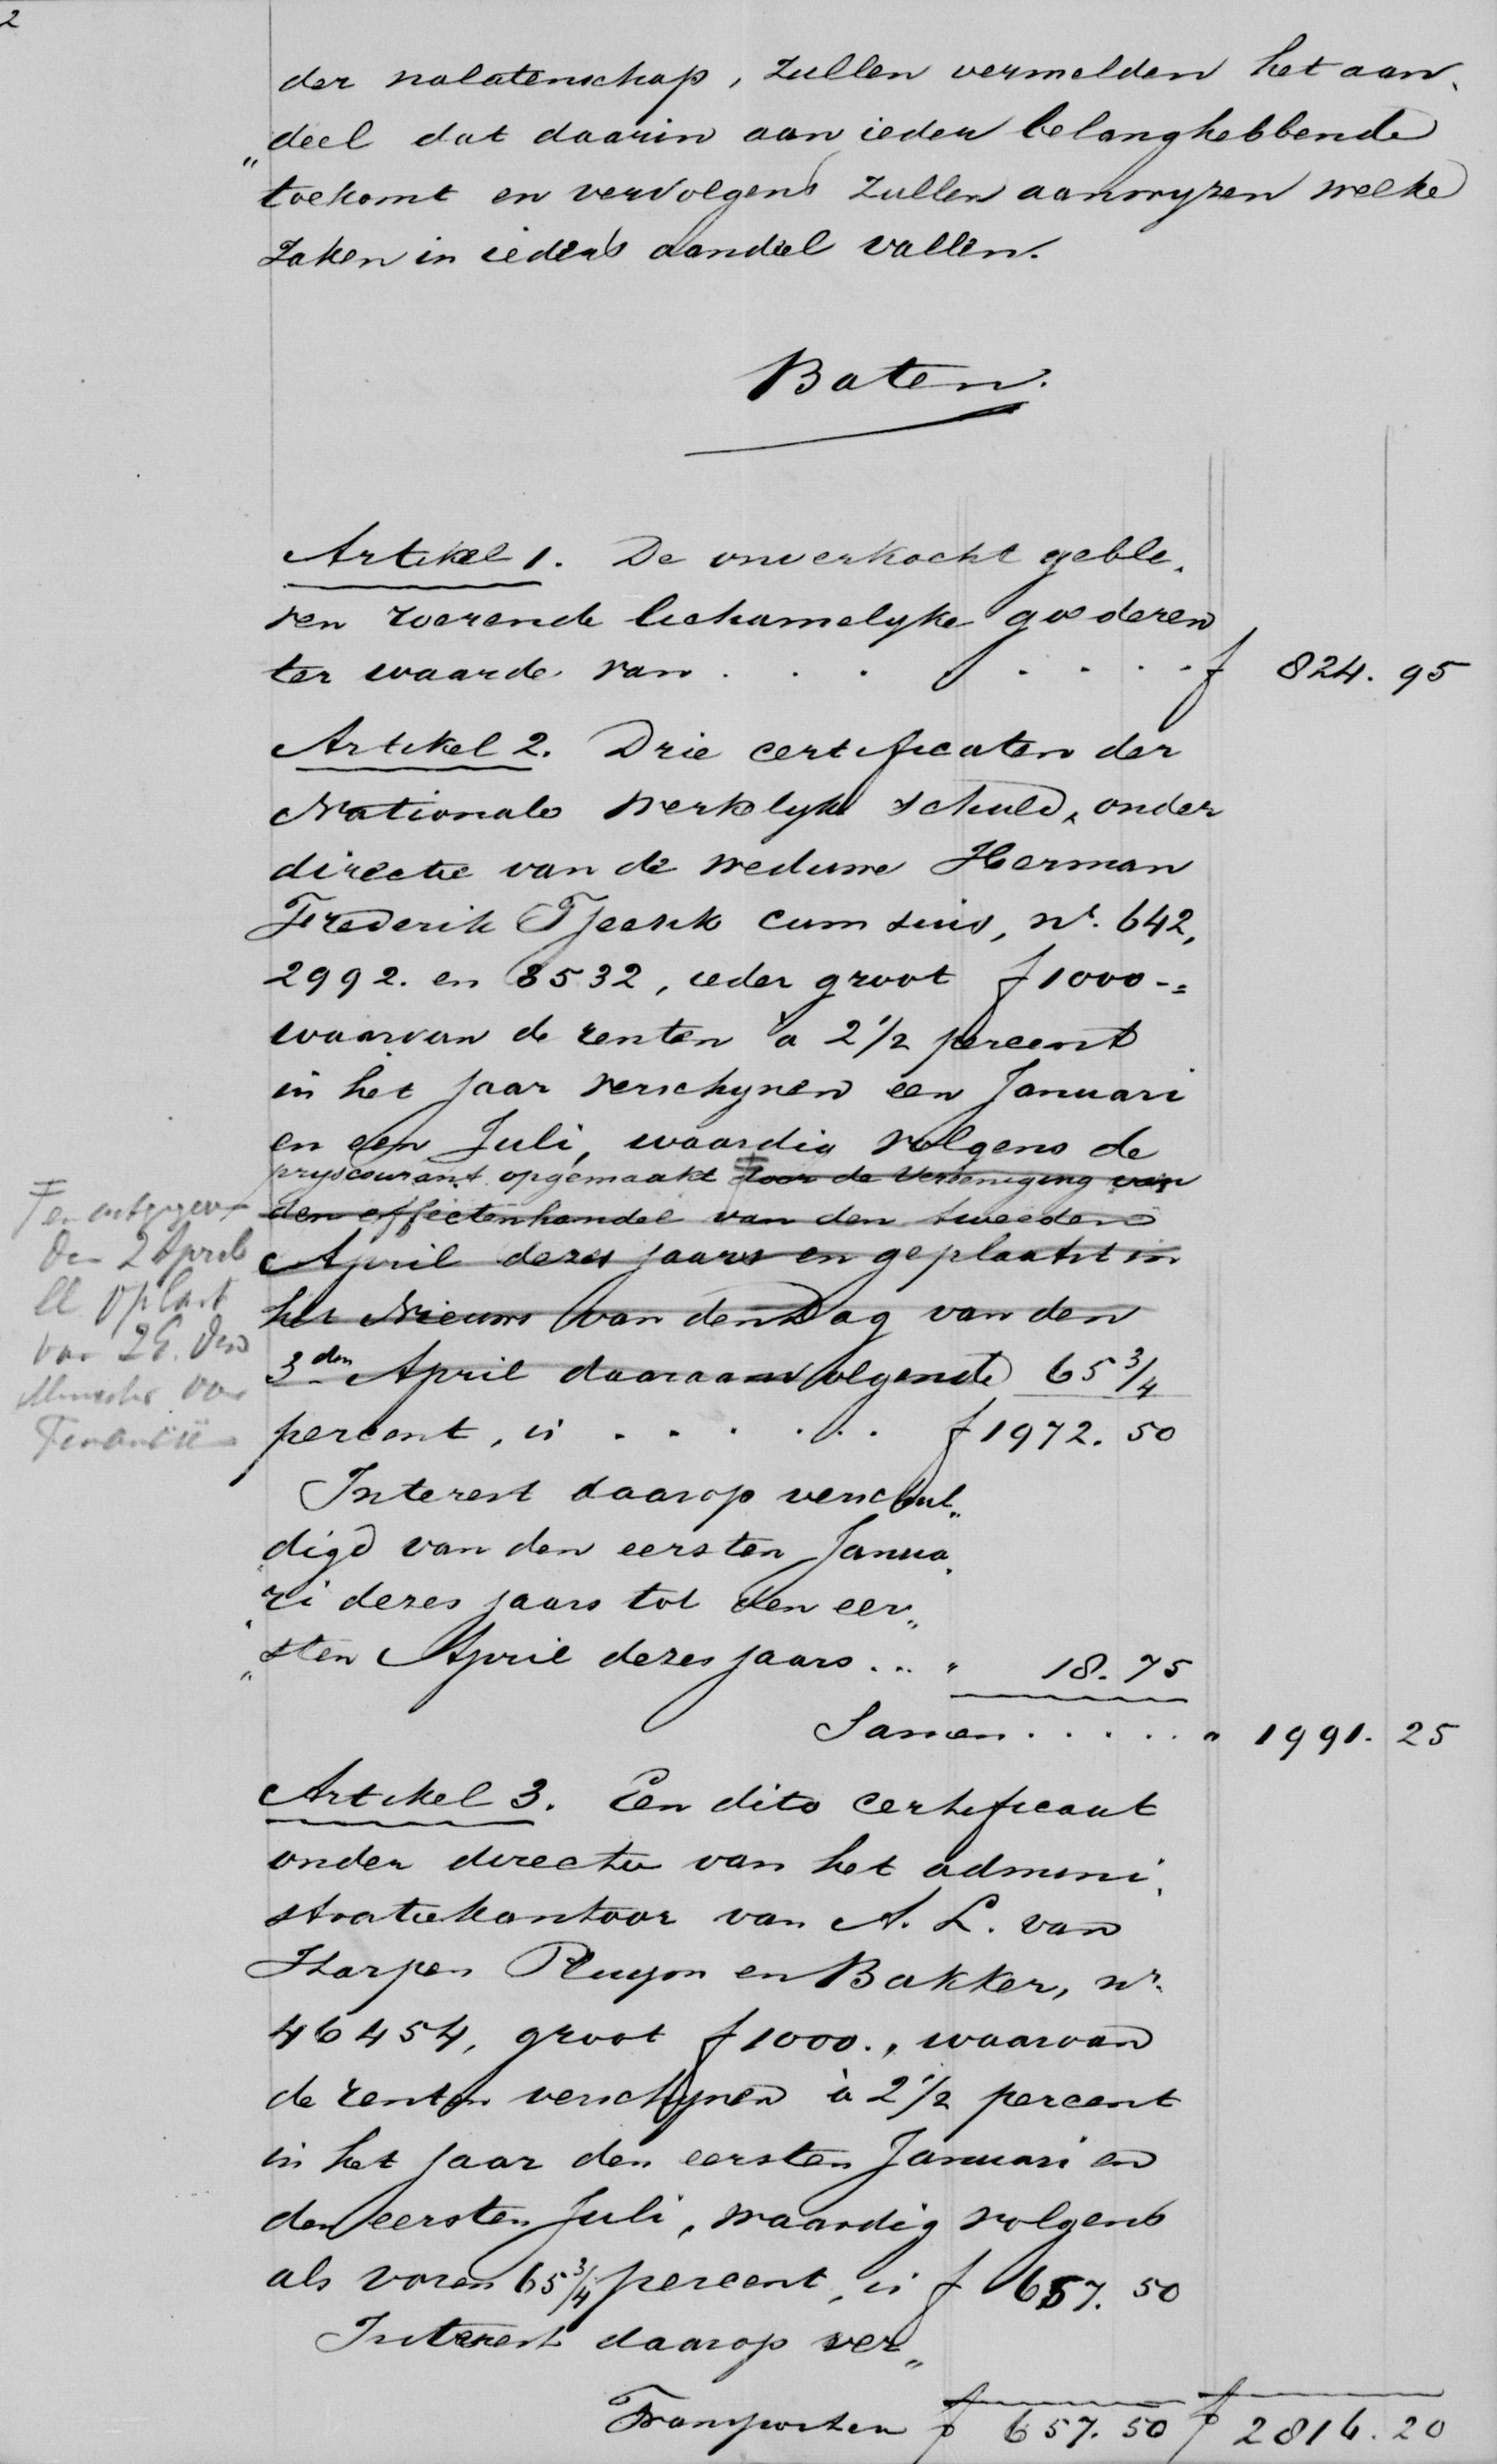 2
der nalatenschap, zullen vermelden het aan„
„deel dat daarin aan ieder belanghebbende
toekomt en vervolgens zullen aanwyzen welke
zaken in ieders aandeel vallen.
Baten.
Artikel 1. De onverkocht geble„
ven roerende lichamelyke goederen
ter waarde van . . . . . . . f 824.95
Artikel 2. Drie certificaten der
Nationale Werkelyke schuld, onder
directie van de weduwe Herman
Frederik Tjeenk cum suis, nrs. 642,
2992. en 8532, ieder groot f 1000-=
waarvan de renten à 2 1/2 percent
in het jaar verschynen een Januari
en een Juli, waardig volgens de
pryscourant opgemaakt door de Vereeniging van
den effectenhandel van den tweeden
April dezes jaars en geplaatst in
het Nieuws van den Dag van den
3den April daaraanvolgende 65 3/4
percent, is . . . . . . f 1972.50
F en uitgegeven
den 2 April
ll op last
van Z.E. den
Minister van
Financiën
Interest daarop verschul„
„digd van den eersten Janua„
„ri dezes jaars tot den eer„
„sten April dezes jaars . . . „ 18.75
Samen . . . . . „ 1991.25
Artikel 3. Een dito certificaat
onder directie van het admini„
stratiekantoor van A. L. van
Harpen Kuyper en Bakker, nr.
46454, groot f 1000., waarvan
de renten verschynen à 2 1/2 percent
in het jaar den eersten Januari en
den eersten Juli, waardig volgens
als voren 65 3/4 percent, is f 657.50
Interest daarop ver„
Transporten f 657.50 f 2816.20